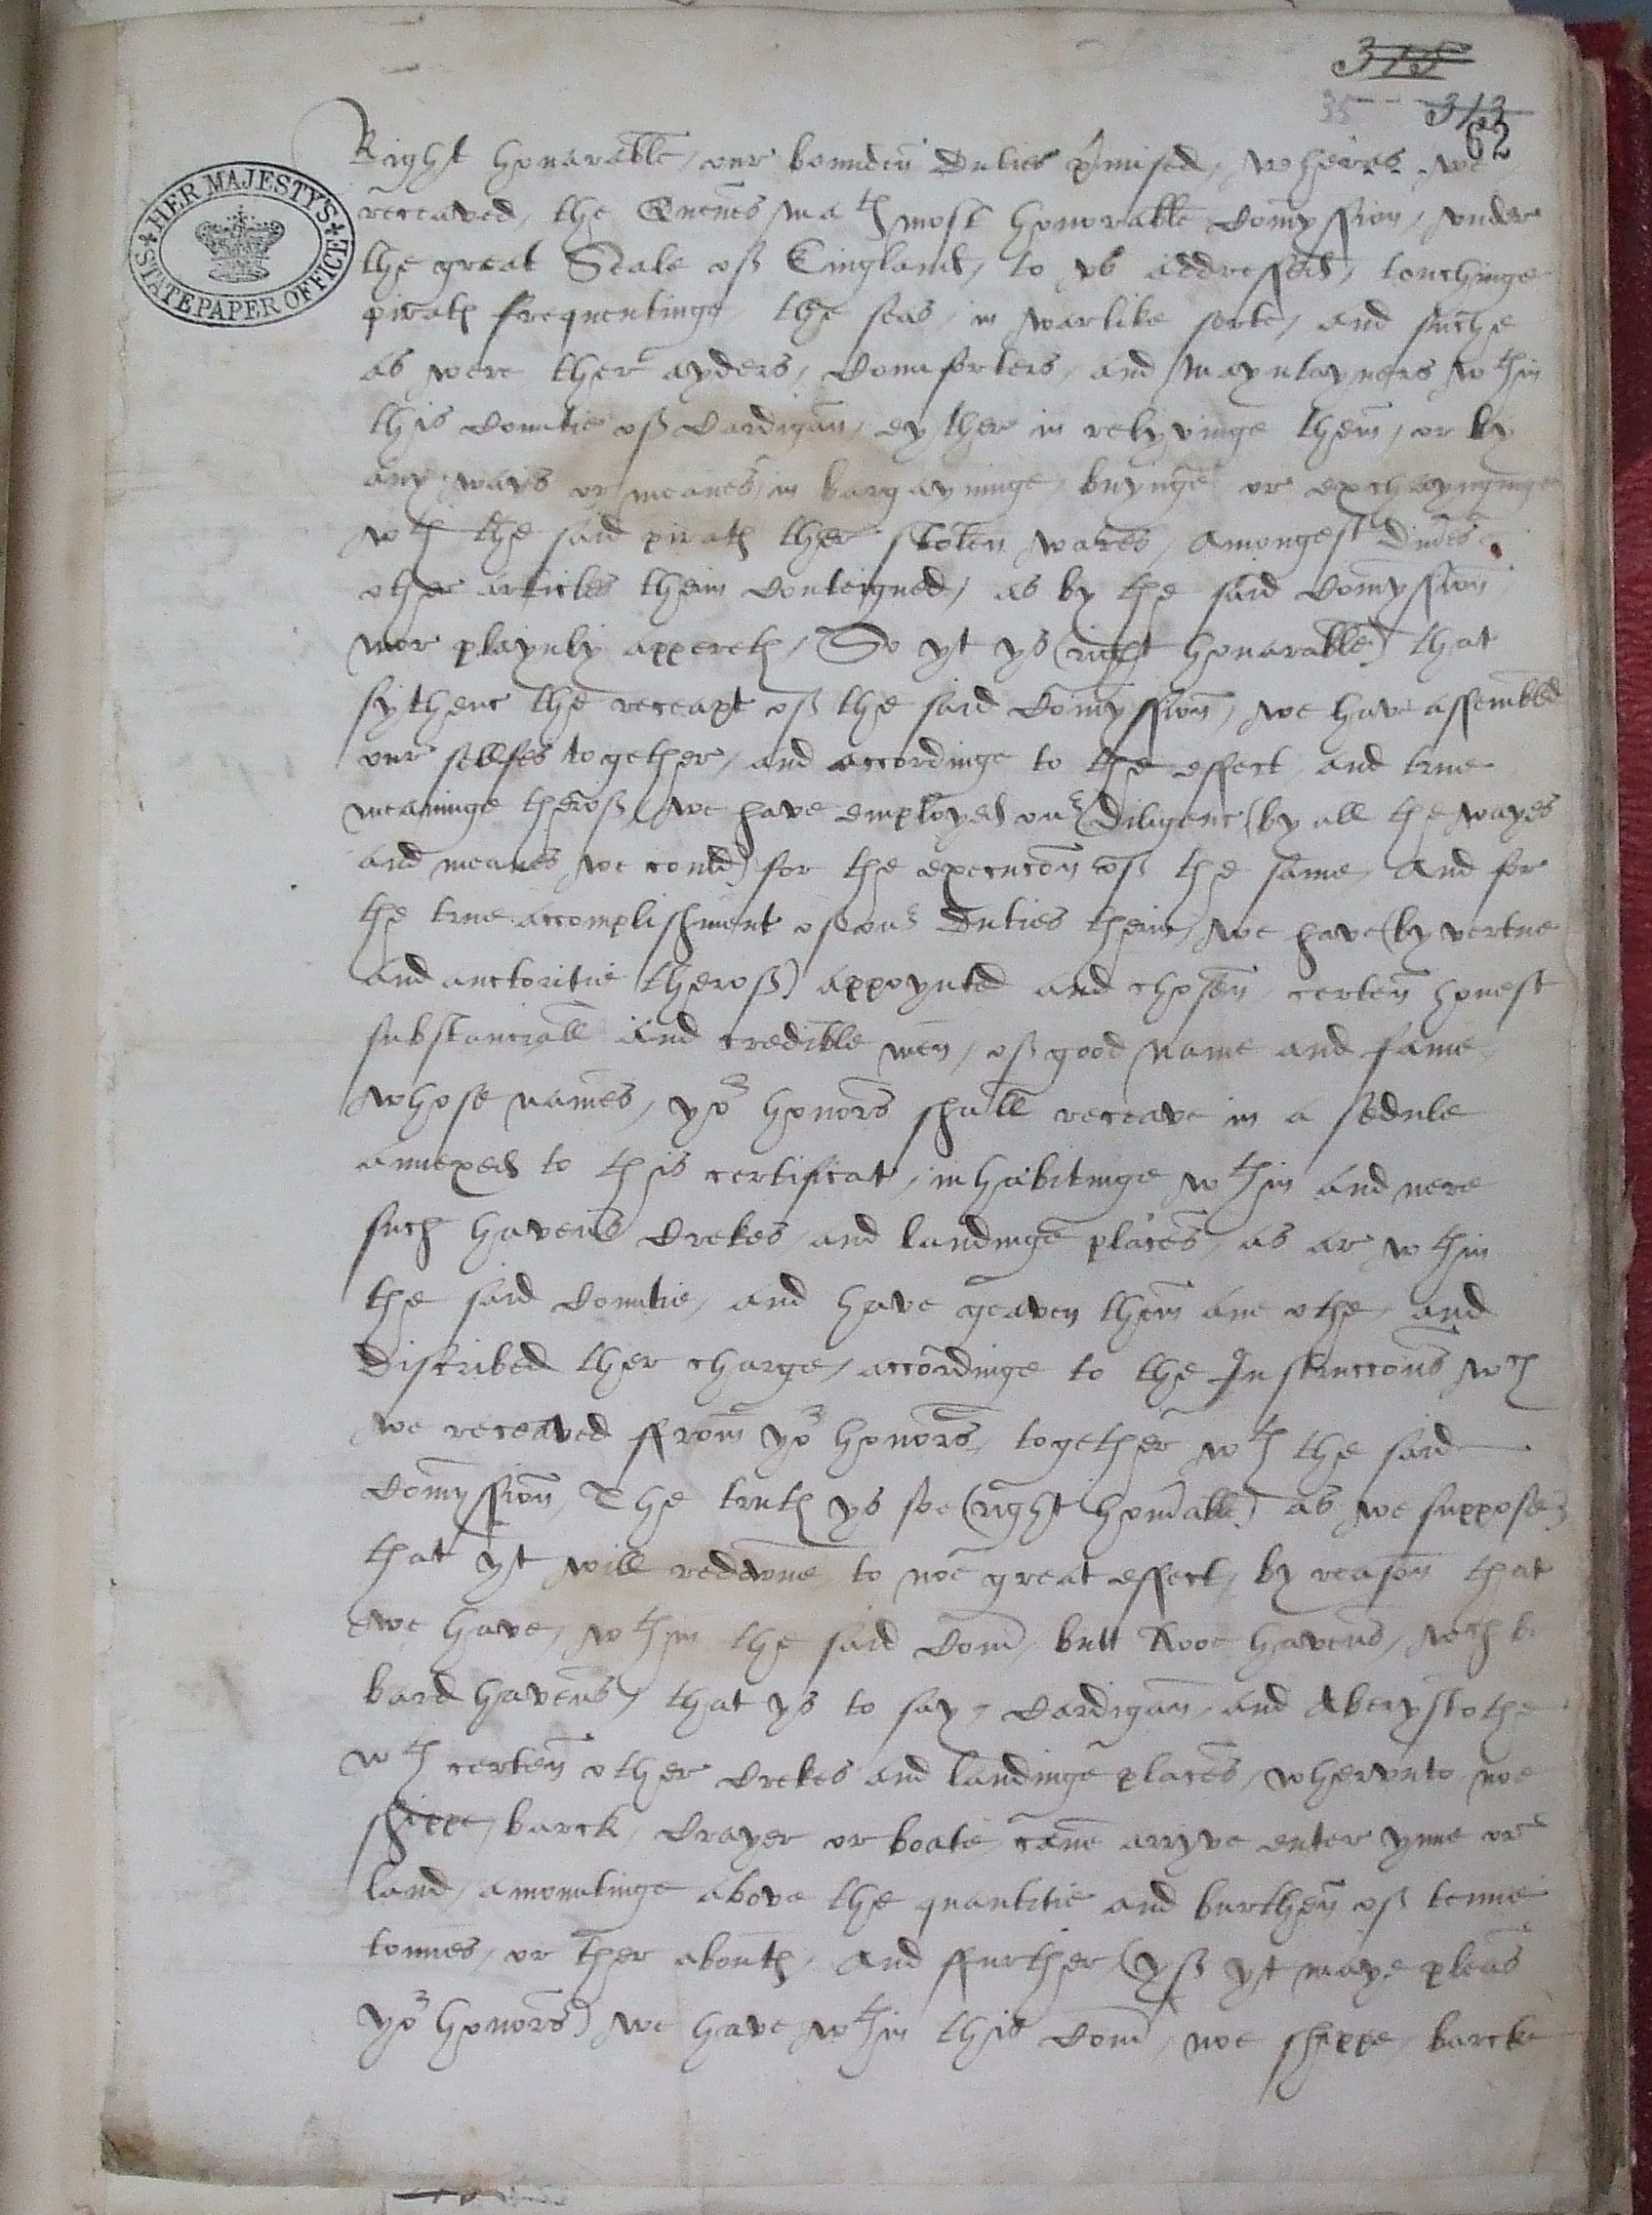 318
35 313
62
HER MAJESTY'S STATE PAPER OFFICE
Right honarable, our bounden duties p'mised, wheras we
receaved, the Quenes matꝭ most honorable Comyssion, under
the great Seale off England, to us addressed, touchinge
piratꝭ frequentinge the seas, in warlike sorte, and suche
as were ther ayders, Comforters, and mayntayners wthin
this Countie off Cardigan, eyther in relyvinge them, or by
any ways or meanes in bargayninge, buyinge or exchaynginge
wth the said piratꝭ ther stolen wares, amongest dives
other articles therin Conteigned, as by the said Comyssion
mor playnly appereth, So yt ys (right honarable) that
sythenc the receapt off the said Comyssion, we have assembled
our sellfes together, and accordinge to the effect and true
meaninge theroff, we have employed our diligenc (by all the wayes
and meanes we could) for the execucon off the same, And for
the true accomplishment of our duties therin, we have (by vertue
and auctoritie theroff) appoynted and chosen certen honest
substanciall and credible men, off good name and fame,
whose names, yor honors shall receave in a sedule
annexed to this certificat, inhabitinge wthin and nere
such havens Crekes and landinge places, as ar wthin
the said Countie, and have geaven them ane othe, and
discribed ther charge, accordinge to the Instruccons wch
we receaved ffrom yor honors, together wth the said
Comyssion, The truth ys soe (right honorable) as we suppose
that yt will redowne to noe great effect, by reason that
we have, wthin the said Com, butt twoe havens, wch b
bard havens, that ys to say, Cardigan and Aberystothe
wth certen other Crekes and landinge places, wherunto noe
shippe, barck, Crayer or boate, cane arryve enter ynne or
land, amountinge above the quantitie and burthen off tenne
tonnes, or ther aboutꝭ, And ffurther (yff yt maye pleas
yor honors) we have wthin this Com, noe shippe, barcke